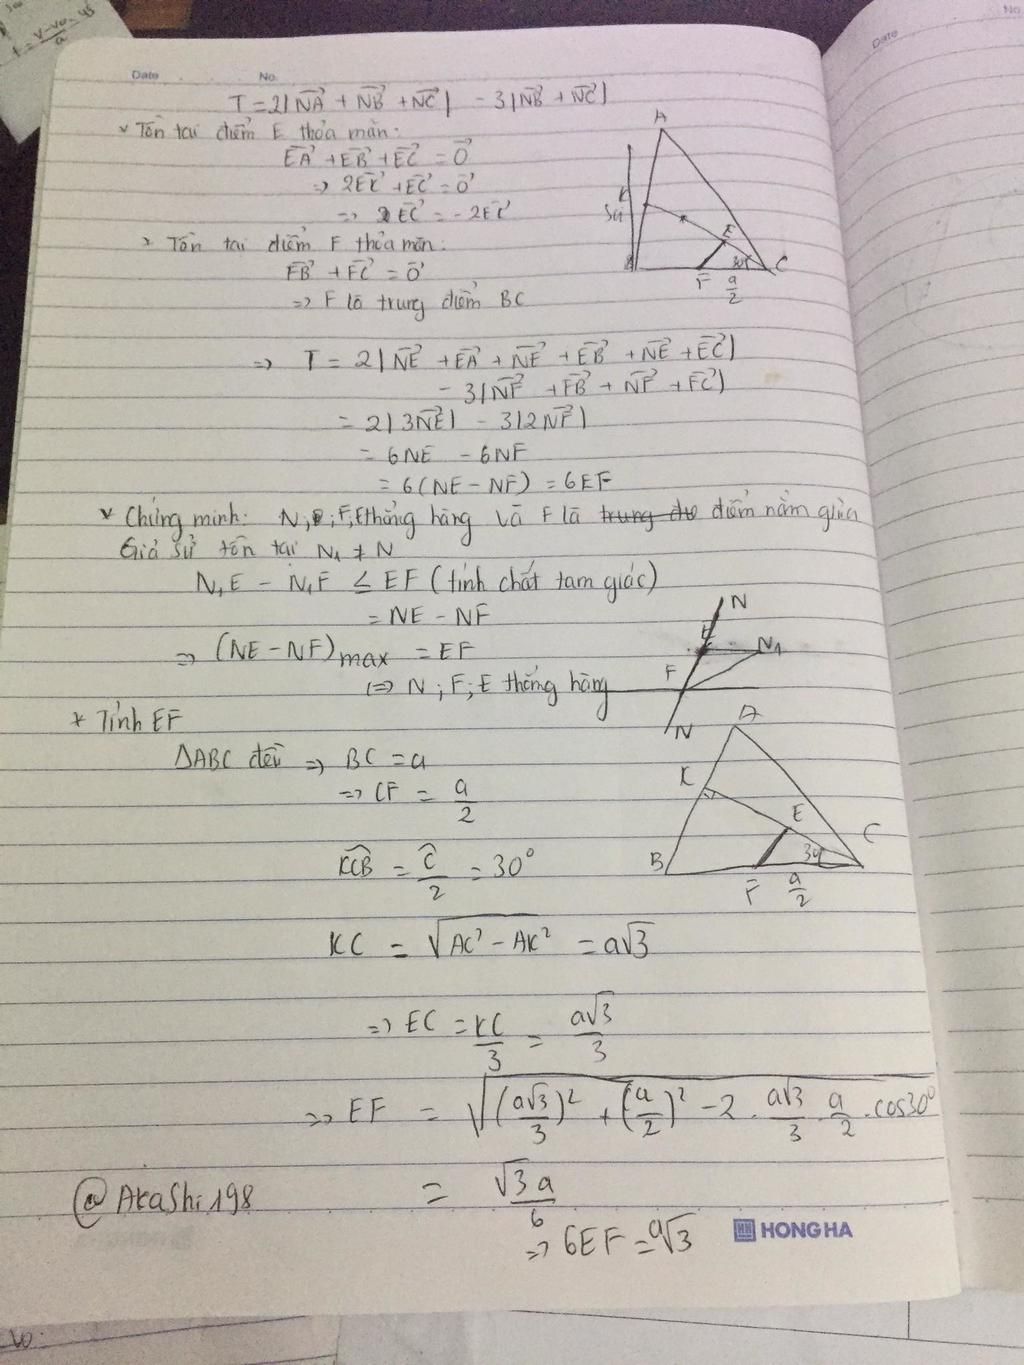 t = v-v₀ / a
Date No.
Date
No
T = 2|NA + NB + NC| - 3|NB + NC|
* Tồn tại điểm E thỏa mãn:
EA + EB + EC = 0
=> 2EK + EC = 0
=> EC = -2EK
* Tồn tại điểm F thỏa mãn:
FB + FC = 0
=> F là trung điểm BC
A
K
E
30°
C
F
a/2
=> T = 2|NE + EA + NE + EB + NE + EC|
- 3|NF + FB + NF + FC|
= 2|3NE| - 3|2NF|
= 6NE - 6NF
= 6(NE - NF) = 6EF
* Chứng minh: N; F; E thẳng hàng và F là trung điể điểm nằm giữa
Giả sử tồn tại N₁ ≠ N
N₁E - N₁F ≤ EF (tính chất tam giác)
= NE - NF
=> (NE - NF)max = EF
<=> N; F; E thẳng hàng
N
E
N₁
F
N
* Tính EF
ΔABC đều => BC = a
=> CF = a/2
KCB = C/2 = 30°
A
K
E
C
B
30°
F
a/2
KC = √AC² - AK² = a√3
=> EC = KC/3 = a√3/3
=> EF = √(a√3/3)² + (a/2)² - 2 . a√3/3 . a/2 . cos30°
= √3a/6
@Akashi198
=> 6EF = a√3
HONG HA